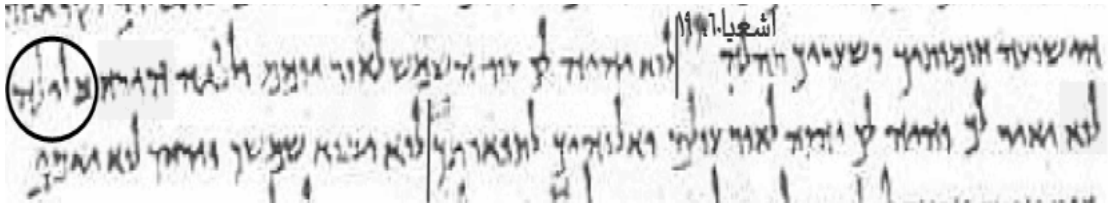 اشعيا ٦٠، ١٩
ישועה חומותיך ושעריך תהלה לוא יהיה לך עוד השמש לאור יומם ולנגה הירח בלילה
לוא יאיר לך והיה לך יהוה לאור עולם ואלוהיך לתפארתך לוא יבוא שמשך וירחך לוא